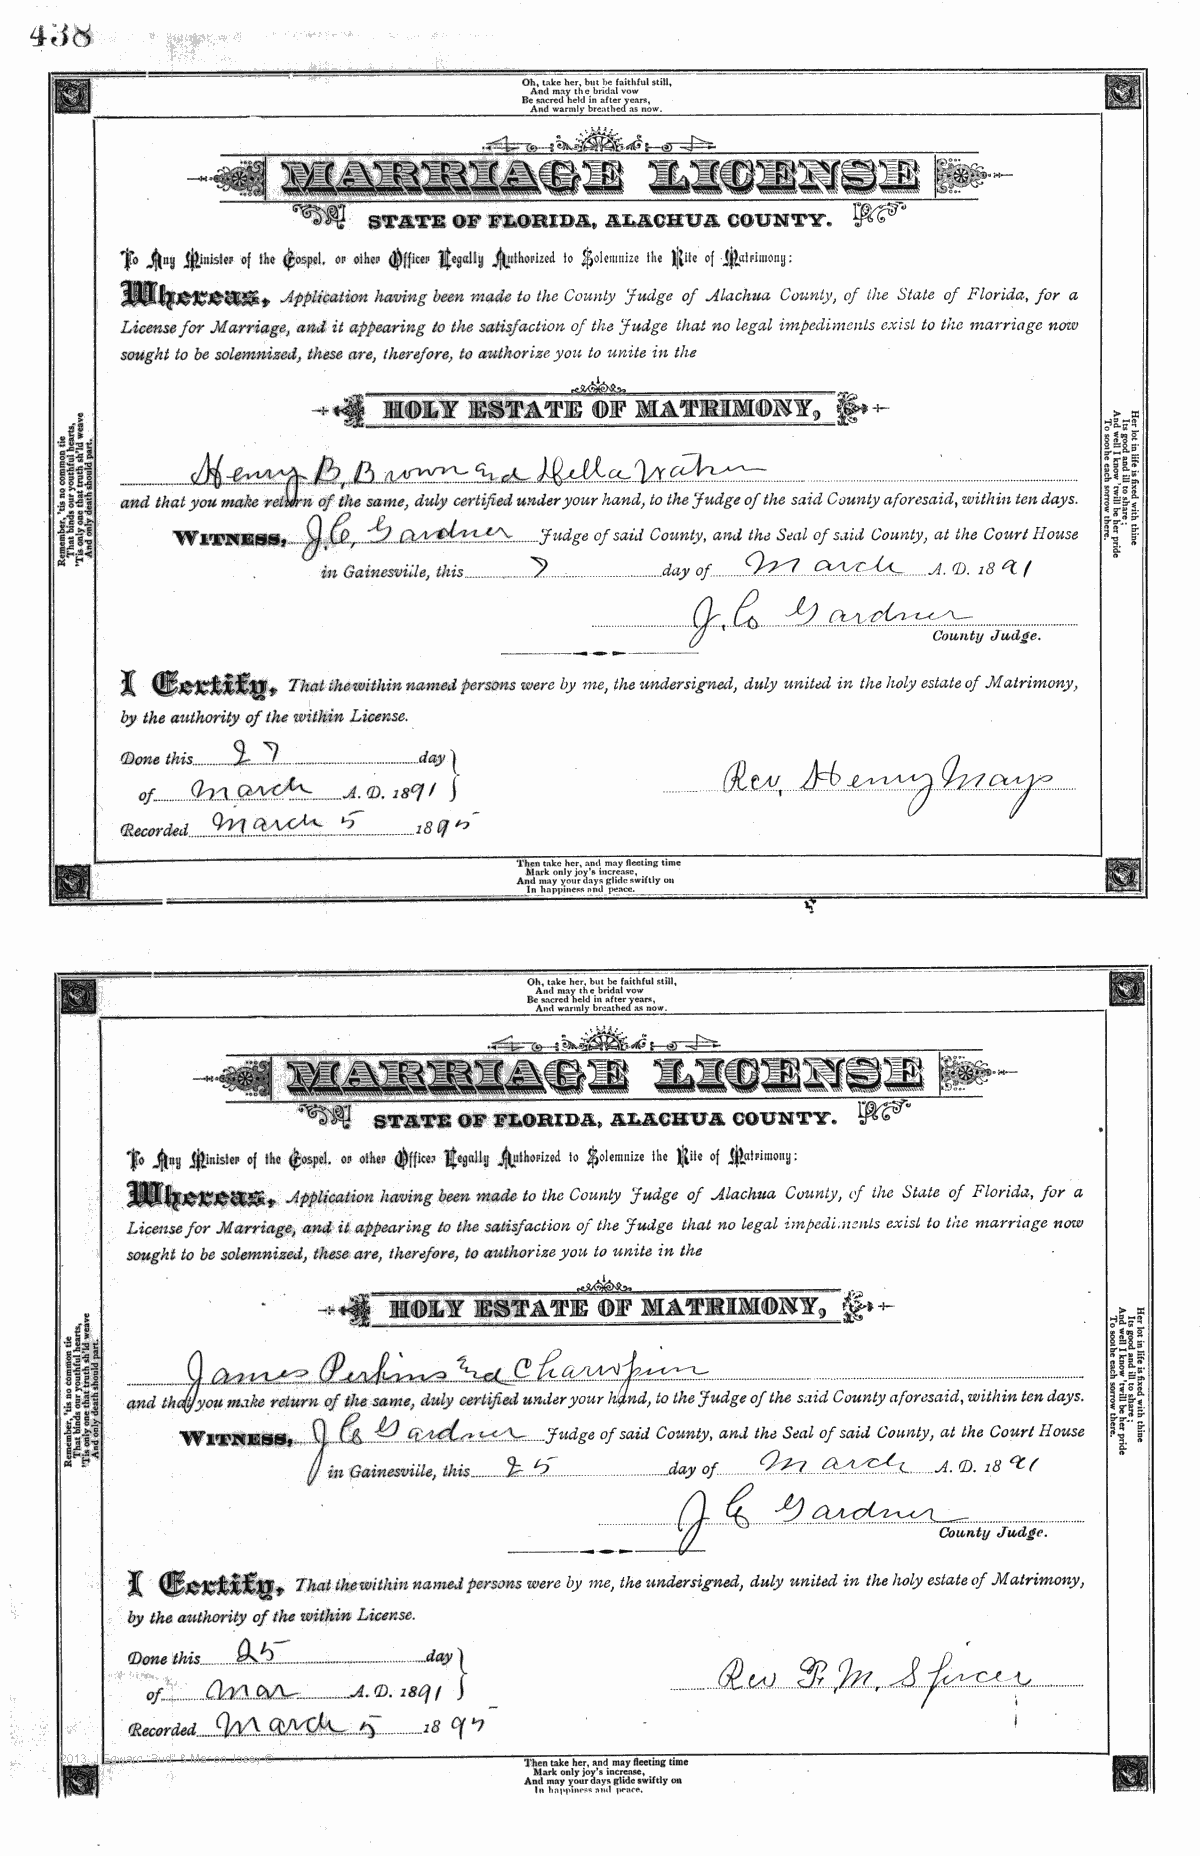 438
Oh, take her, but be faithful still,
And may the bridal vow
Be sacred held in after years,
And warmly breathed as now.
MARRIAGE LICENSE
STATE OF FLORIDA, ALACHUA COUNTY.
To Any Minister of the Gospel, or other Officer Legally Authorized to Solemnize the Rite of Matrimony:
Whereas, Application having been made to the County Judge of Alachua County, of the State of Florida, for a
License for Marriage, and it appearing to the satisfaction of the Judge that no legal impediments exist to the marriage now
sought to be solemnized, these are, therefore, to authorize you to unite in the
HOLY ESTATE OF MATRIMONY,
Henry B. Brown and Hella
and that you make return of the same, duly certified under your hand, to the Judge of the said County aforesaid, within ten days.
WITNESS, J. C. Gardner Judge of said County, and the Seal of said County, at the Court House
in Gainesville, this 7 day of March A. D. 1891
J. C. Gardner
County Judge.
I Certify, That the within named persons were by me, the undersigned, duly united in the holy estate of Matrimony,
by the authority of the within License.
Done this 27 day
of March A. D. 1891
Rev. Henry Mays
Recorded March 5 1895
Remember, 'tis no common tie
That binds our youthful hearts,
'Tis only one that truth sh'ld weave
And only death should part.
Her lot in life is fixed with thine
Its good and ill to share;
And well I know 'twill be her pride
To soothe each sorrow there.
Then take her, and may fleeting time
Mark only joy's increase,
And may your days glide swiftly on
In happiness and peace.
Oh, take her, but be faithful still,
And may the bridal vow
Be sacred held in after years,
And warmly breathed as now.
MARRIAGE LICENSE
STATE OF FLORIDA, ALACHUA COUNTY.
To Any Minister of the Gospel, or other Officer Legally Authorized to Solemnize the Rite of Matrimony:
Whereas, Application having been made to the County Judge of Alachua County, of the State of Florida, for a
License for Marriage, and it appearing to the satisfaction of the Judge that no legal impediments exist to the marriage now
sought to be solemnized, these are, therefore, to authorize you to unite in the
HOLY ESTATE OF MATRIMONY,
James Perkins and
and that you make return of the same, duly certified under your hand, to the Judge of the said County aforesaid, within ten days.
WITNESS, J C Gardner Judge of said County, and the Seal of said County, at the Court House
in Gainesville, this 25 day of March A. D. 1891
J C Gardner
County Judge.
I Certify, That the within named persons were by me, the undersigned, duly united in the holy estate of Matrimony,
by the authority of the within License.
Done this 25 day
of Mar A. D. 1891
Rev F. M. Spicer
Recorded March 5 1895
Remember, 'tis no common tie
That binds our youthful hearts,
'Tis only one that truth sh'ld weave
And only death should part.
Her lot in life is fixed with thine
Its good and ill to share;
And well I know 'twill be her pride
To soothe each sorrow there.
Then take her, and may fleeting time
Mark only joy's increase,
And may your days glide swiftly on
In happiness and peace.